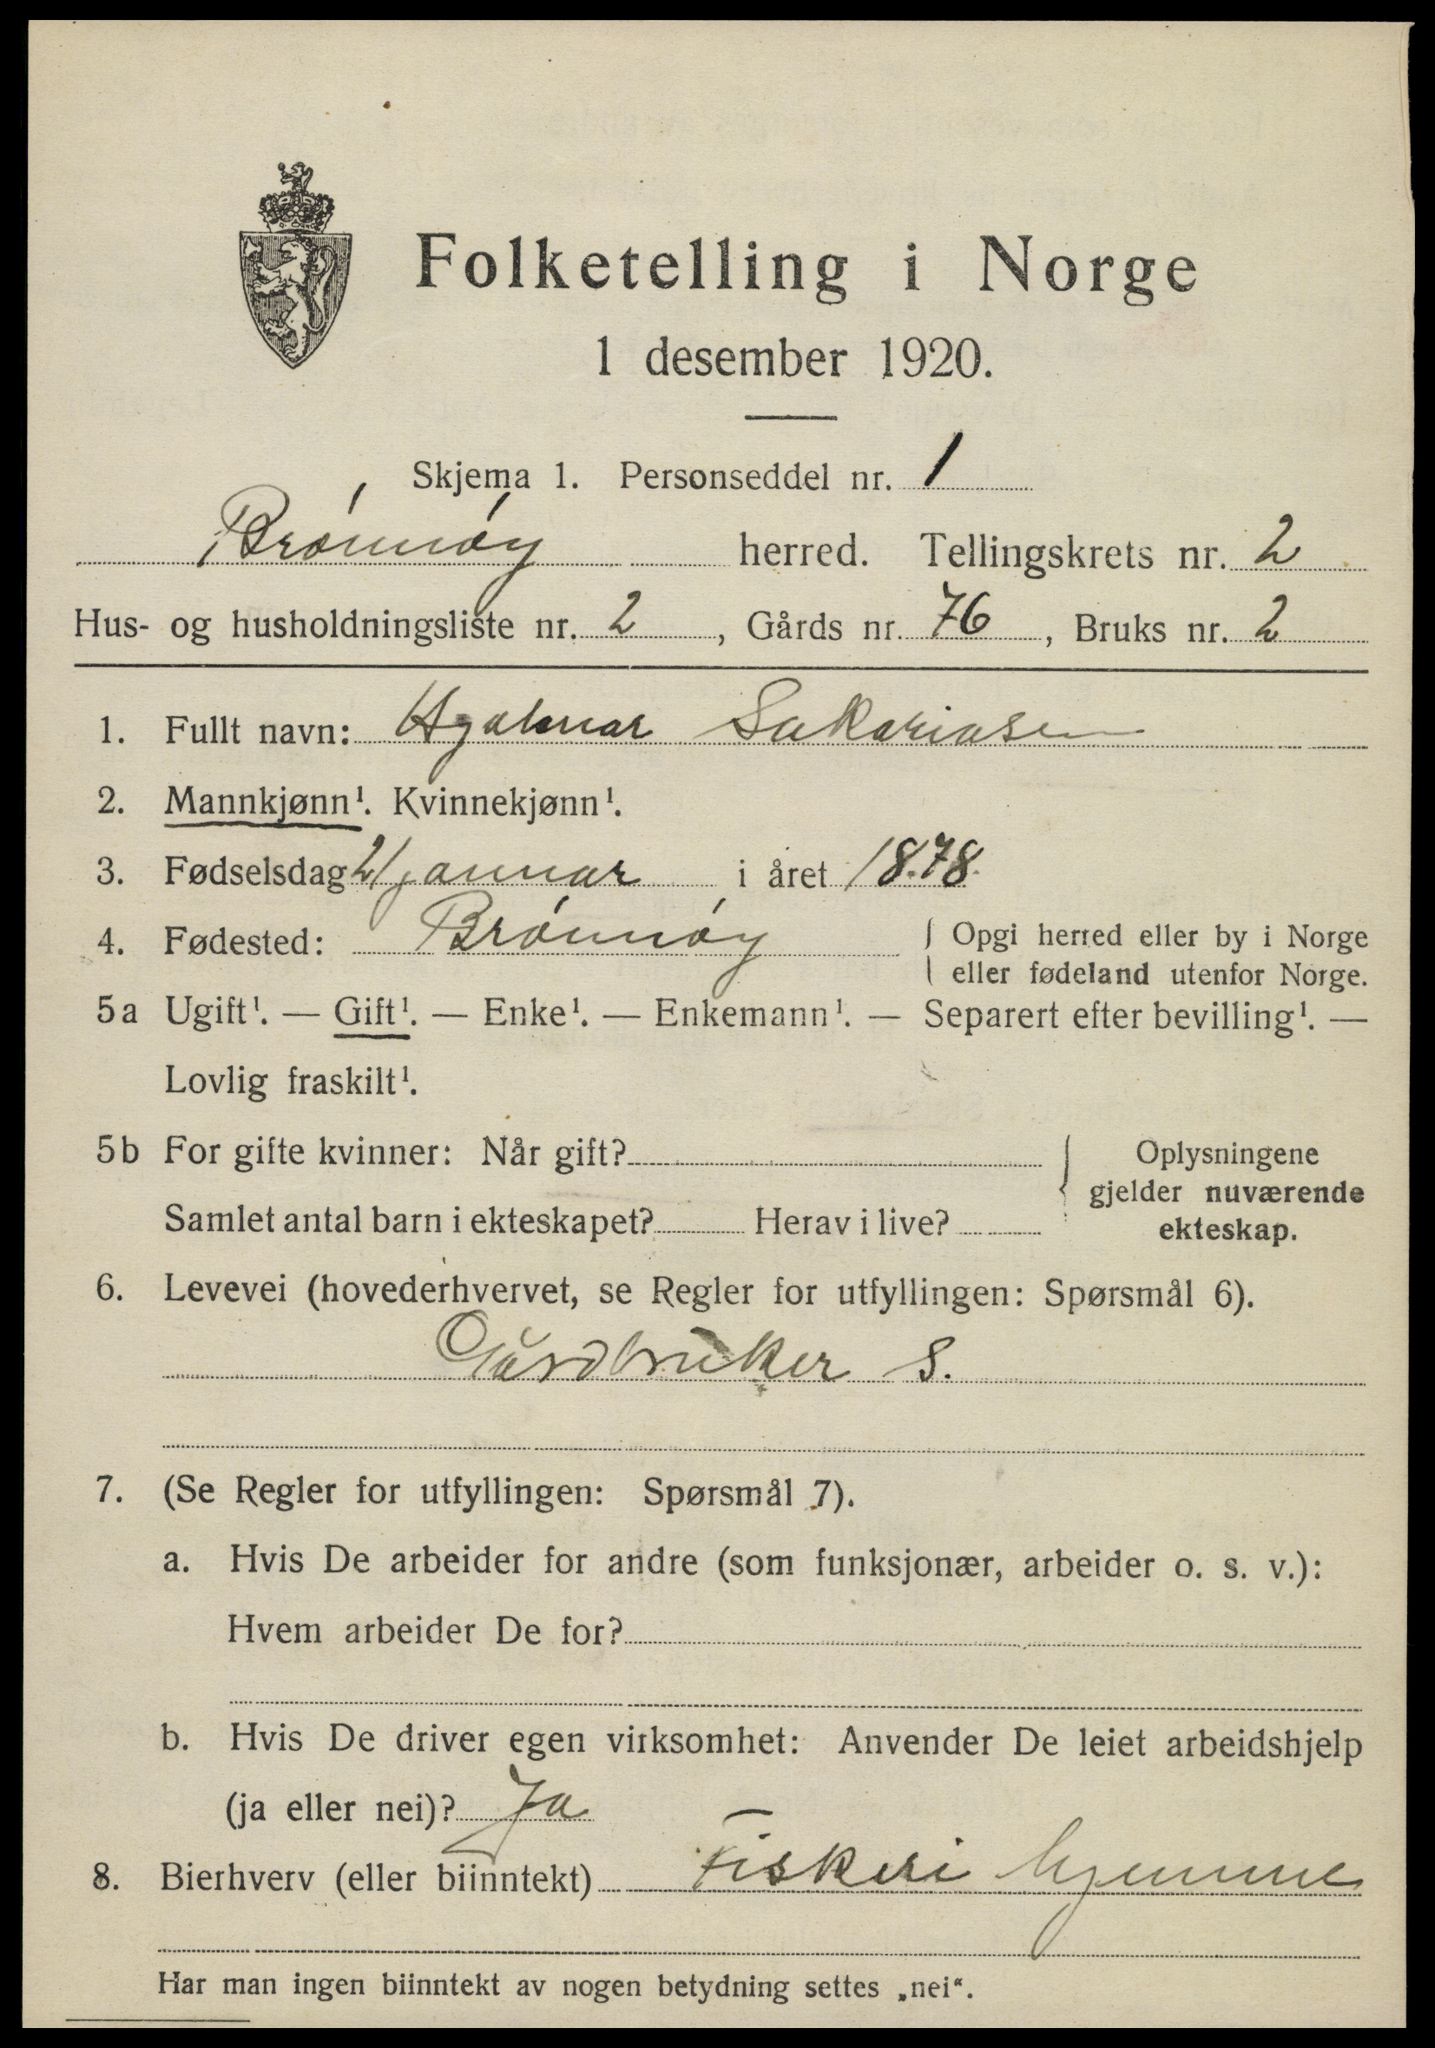 Folketelling i Norge
1 desember 1920.
Skjema 1. Personseddel nr. 1
Brönnöy herred. Tellingskrets nr. 2
Hus- og husholdningsliste nr. 2, Gårds nr. 76, Bruks nr. 2
1. Fullt navn: Hjalmar Sakariasen
2. Mannkjønn¹. Kvinnekjønn¹.
3. Fødselsdag 21 januar i året 1878.
4. Fødested: Brönnöy { Opgi herred eller by i Norge
eller fødeland utenfor Norge.
5a Ugift¹. — Gift¹. — Enke¹. — Enkemann¹. — Separert efter bevilling¹. —
Lovlig fraskilt¹.
5b For gifte kvinner: Når gift?
Samlet antal barn i ekteskapet? Herav i live?
{ Oplysningene
gjelder nuværende
ekteskap.
6. Levevei (hovederhvervet, se Regler for utfyllingen: Spørsmål 6).
Gårdbruker S.
7. (Se Regler for utfyllingen: Spørsmål 7).
a. Hvis De arbeider for andre (som funksjonær, arbeider o. s. v.):
Hvem arbeider De for?
b. Hvis De driver egen virksomhet: Anvender De leiet arbeidshjelp
(ja eller nei)? Ja
8. Bierhverv (eller biinntekt) Fiskeri hjemme
Har man ingen biinntekt av nogen betydning settes „nei“.